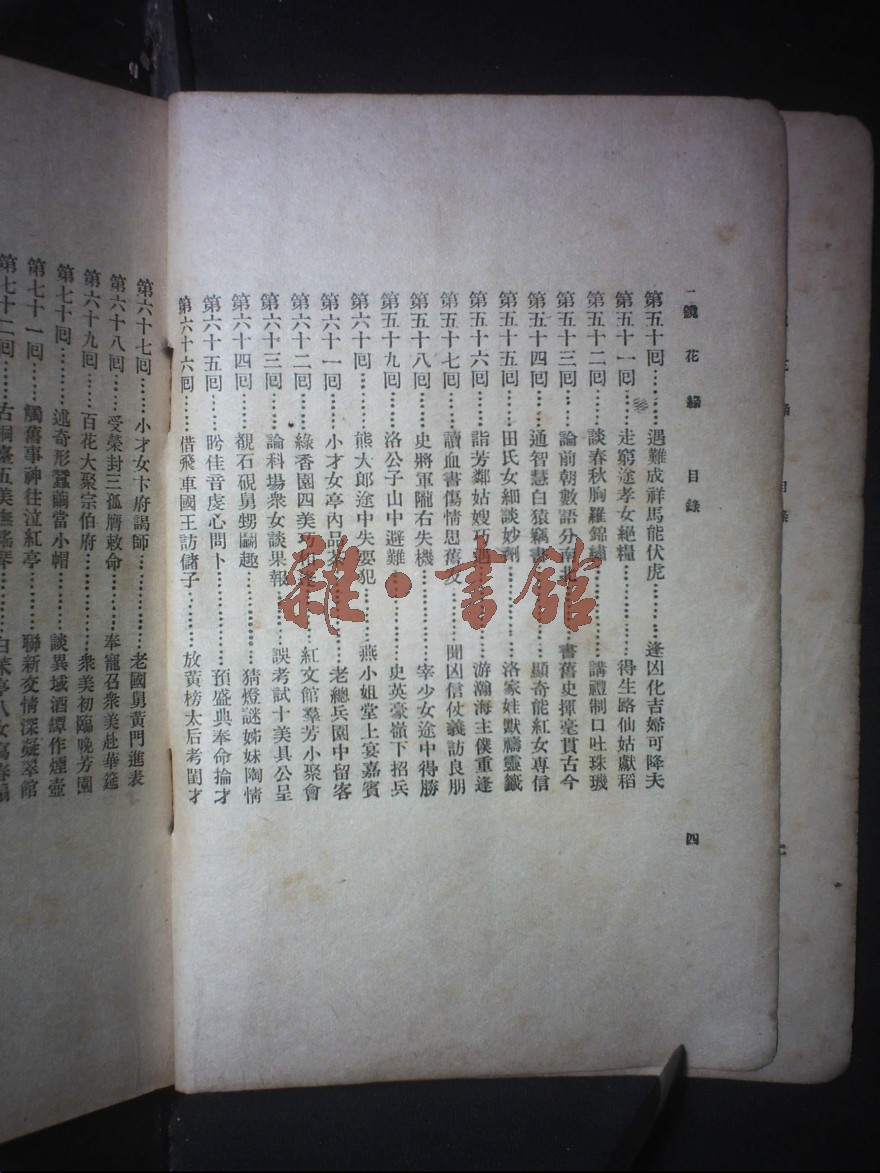 鏡花緣 目錄 四
第五十回……遇難成祥馬能伏虎………逢凶化吉婦可降夫
第五十一回……走窮途孝女絕糧………得生路仙姑獻稻
第五十二回……談春秋胸羅錦繡………講禮制口吐珠璣
第五十三回……論前朝數語分南北………書舊史揮毫貫古今
第五十四回……通智慧白猿竊書………顯奇能紅女傳信
第五十五回……田氏女細談妙劑………洛家娃默禱靈籤
第五十六回……詣芳鄰姑嫂巧遇………游瀚海主僕重逢
第五十七回……讀血書傷情思舊友………聞凶信仗義訪良朋
第五十八回……史將軍隴右失機………宰少女途中得勝
第五十九回……洛公子山中避難………史英豪嶺下招兵
第六十回……熊大郎途中失要犯………燕小姐堂上宴嘉賓
第六十一回……小才女亭內品茶………老總兵園中留客
第六十二回……綠香園四美巧相逢………紅文館羣芳小聚會
第六十三回……論科場衆女談果報………誤考試十美具公呈
第六十四回……覩石硯舅甥鬭趣………猜燈謎姊妹陶情
第六十五回……盻佳音虔心問卜………預盛典奉命掄才
第六十六回……借飛車國王訪儲子………放黃榜太后考閨才
第六十七回……小才女卞府謁師………老國舅黃門進表
第六十八回……受榮封三孤膺敕命………奉寵召衆美赴華筵
第六十九回……百花大聚宗伯府………衆美初臨晚芳園
第七十回………述奇形蠶繭當小帽………談異域酒罈作煙壺
第七十一回……觸舊事神往泣紅亭………聯新交情深凝翠館
第七十二回……古桐臺五美撫瑤琴………白菜亭八女寫春扇
雜·書館